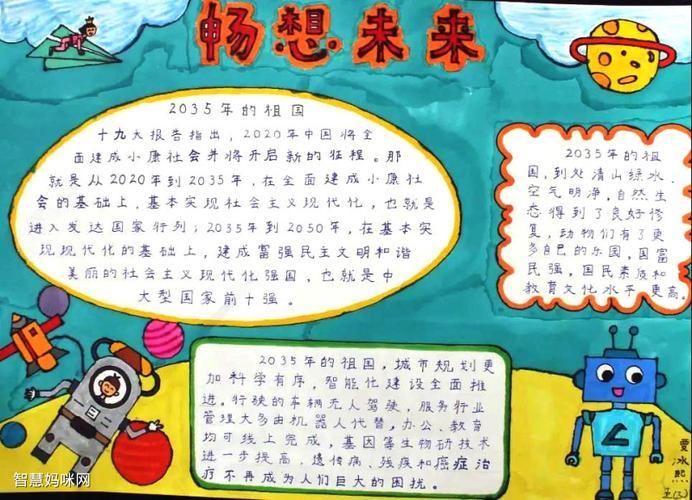 畅想未来
2035年的祖国
十九大报告指出，2020年中国将全
面建成小康社会并将开启新的征程。那
就是从2020年到2035年，在全面建成小康社
会的基础上，基本实现社会主义现代化，也就是
进入发达国家行列；2035年到2050年，在基本实
现现代化的基础上，建成富强民主文明和谐
美丽的社会主义现代化强国，也就是中
大型国家前十强。
2035年的祖
国，到处清山绿水、
空气明净，自然生
态得到了良好修
复，动物们有了更
多自己的乐园，国富
民强，国民素质和
教育文化水平更高。
2035年的祖国，城市规划更
加科学有序，智能化建设全面推
进，行驶的车辆无人驾驶，服务行业
管理大多由机器人代替，办公、教育
均可线上完成，基因等生物研技术
进一步提高，遗传病、残疾和癌症治
疗不再成为人们巨大的困扰。
贾冰熙
智慧妈咪网